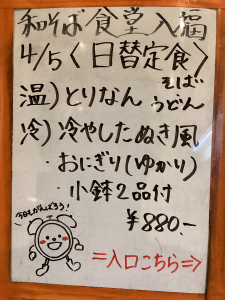 和そば食堂入福
4/5〈日替定食〉
温)とりなん そば
うどん
冷)冷やしたぬき風
・おにぎり(ゆかり)
・小鉢2品付
¥880.-
今日もがんばろう!
⇒入口こちら⇒